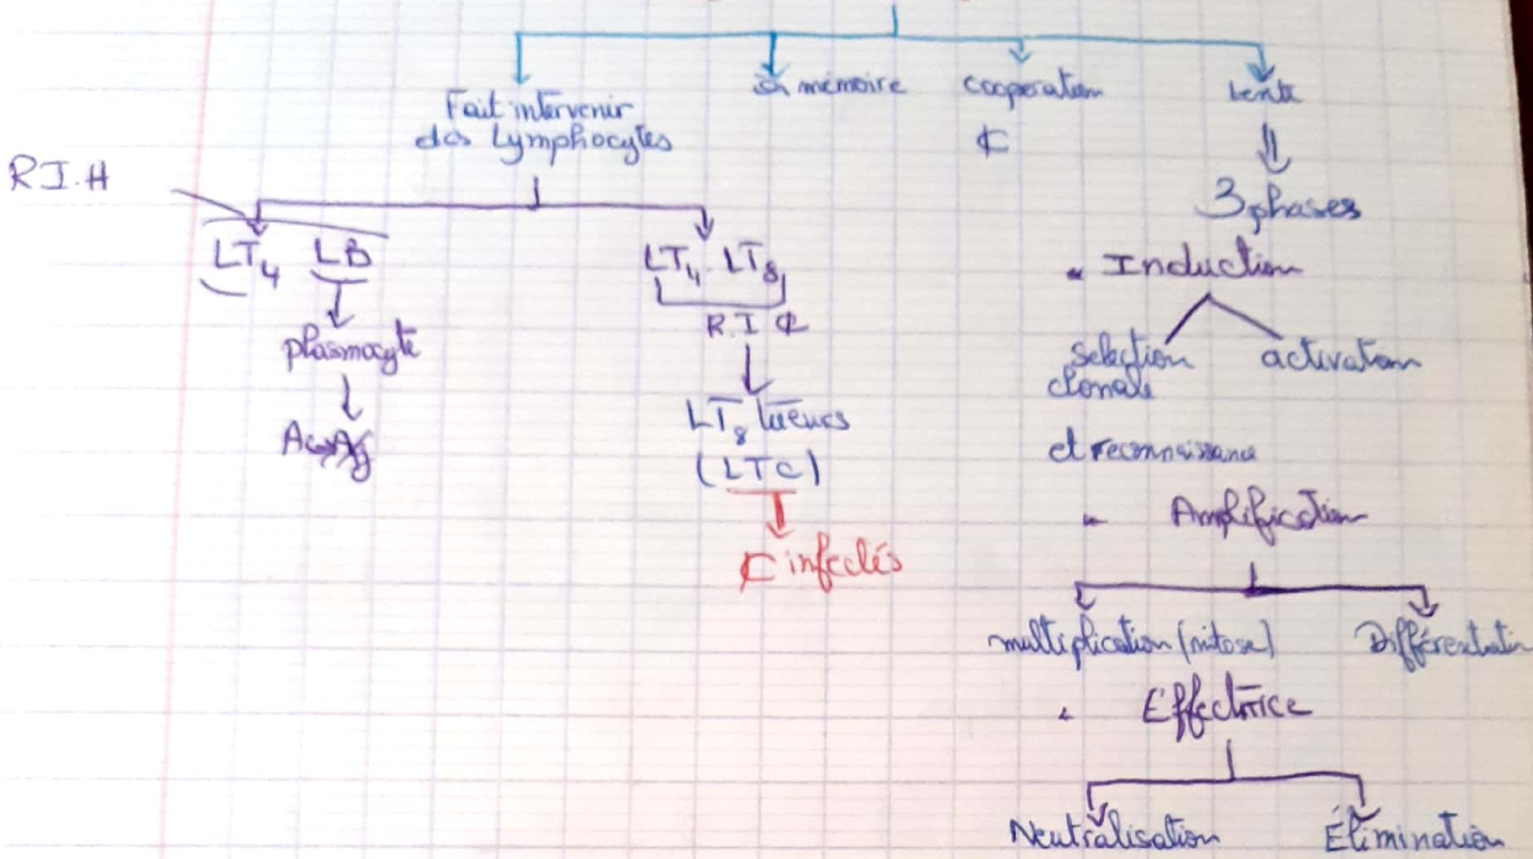 Fait intervenir
des Lymphocytes
mémoire
cooperation
₵
Lente
3 phases
R.I.H
LT4 LB
plasmocyte
LT4 LT8
R.I ₵
LT8 tueurs
(LTC)
₵ infectés
Induction
Selection
clonale
activation
et reconnaissance
Amplification
multiplication (mitose)
Différentiation
Effectrice
Neutralisation
Élimination